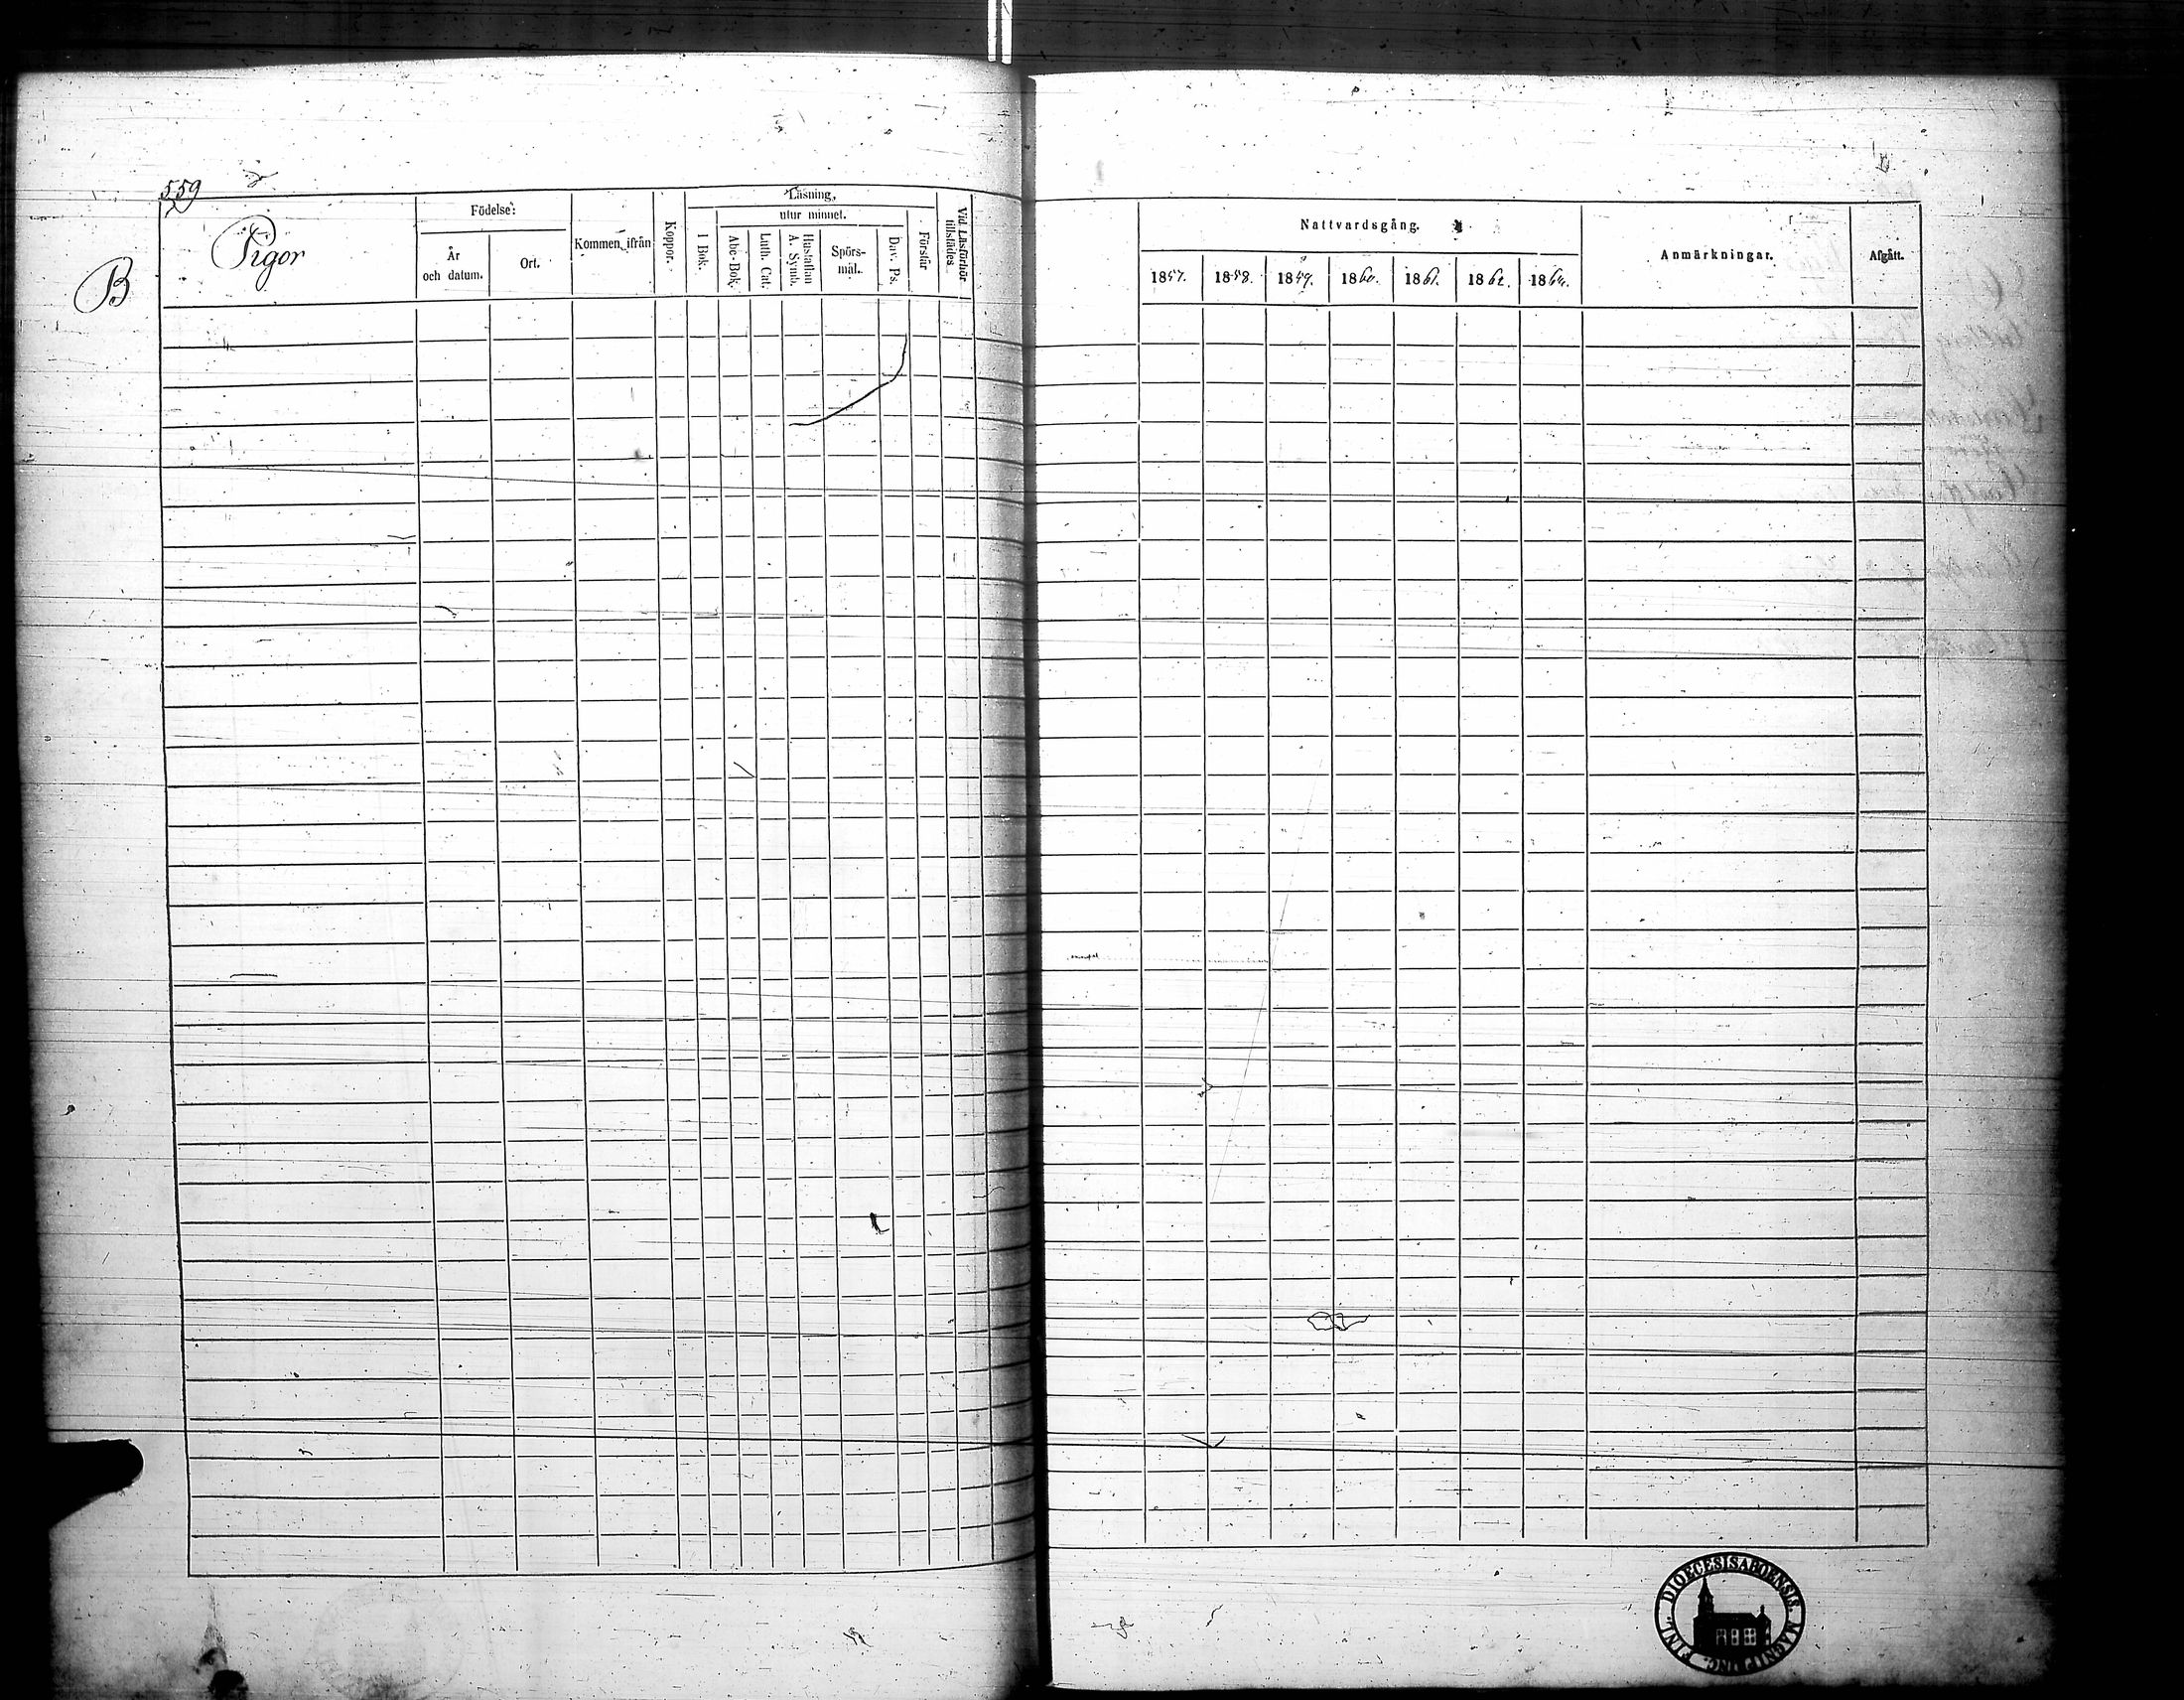 559
B
Pigor
Födelse:
År
och datum.
Ort.
Kommen ifrån
Koppor.
Läsning,
I Bok.
utur minnet.
Abc-Bok.
Luth. Cat.
Hustaflan
A. Symb.
Spörs-
mål.
Dav. Ps.
Förstår
Vid Läsförhör
tillstädes
Nattvardsgång.
1857. 1858. 1859. 1860. 1861. 1862. 186
Anmärkningar.
Afgått.
DIOECESIS ABOENSIS. MAGNI PRINC. FINL.